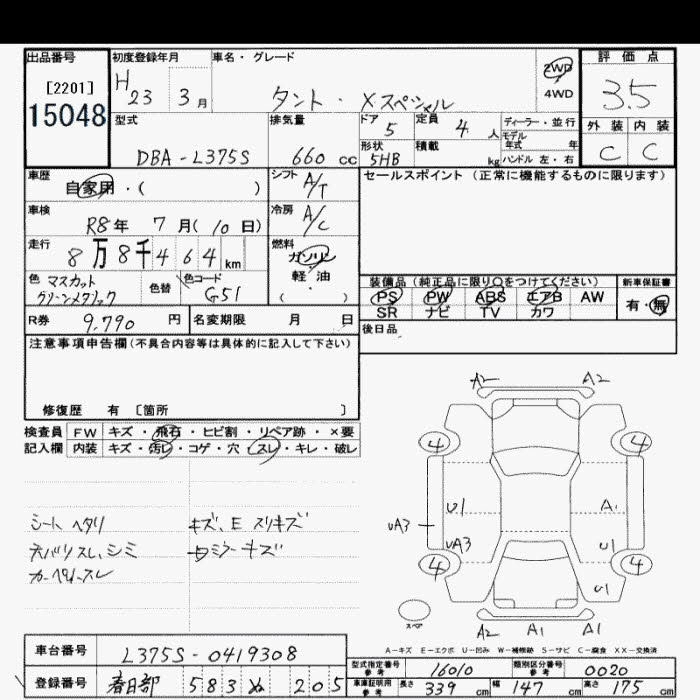 出品番号 初度登録年月 車名・グレード 評価点
[2201] H23 3月 タント・Xスペシャル 2WD 3.5
15048 4WD
型式 排気量 ドア 5 定員 4人 ディーラー・並行 外装 内装
DBA-L375S 660cc 形状 5HB 積載 kg モデル年式 年 C C
ハンドル 左・右
車歴 シフト A/T セールスポイント(正常に機能するものに限ります)
自家用・( )
車検 冷房 A/C
R8年 7月(10日)
走行 8万8千464km 燃料 ガソリン
軽・油
( )
色 マスカットグリーンメタリック 色替 色コード G51 装備品(純正品に限り○をつけてください) 新車保証書
PS PW ABS エアB AW 有・無
SR ナビ TV カワ
R券 9,790円 名変期限 月 日 後日品
注意事項申告欄(不具合内容等は具体的に記入して下さい)
修復歴 有 〔箇所 〕
検査員 FW キズ・飛石・ヒビ割・リペア跡・×要
記入欄 内装 キズ・汚レ・コゲ・穴・スレ・キレ・破レ
シートヘタリ キズ、E スリキズ
天バリスレ、シミ ミラーキズ
カーペットスレ
A2 A2
4 4
U1 A1
UA3
UA3 U1
4 4
U1
スペア
A2 A1 A1
A-キズ E-エクボ U-凹み W-補修跡 S-サビ C-腐食 XX-交換済
車台番号 L375S-0419308 型式指定番号 参考 16010 類別区分番号 参考 0020
登録番号 春日部 583 ぬ 205 車庫証明用 参考 長さ 339cm 幅 147cm 高さ 175cm